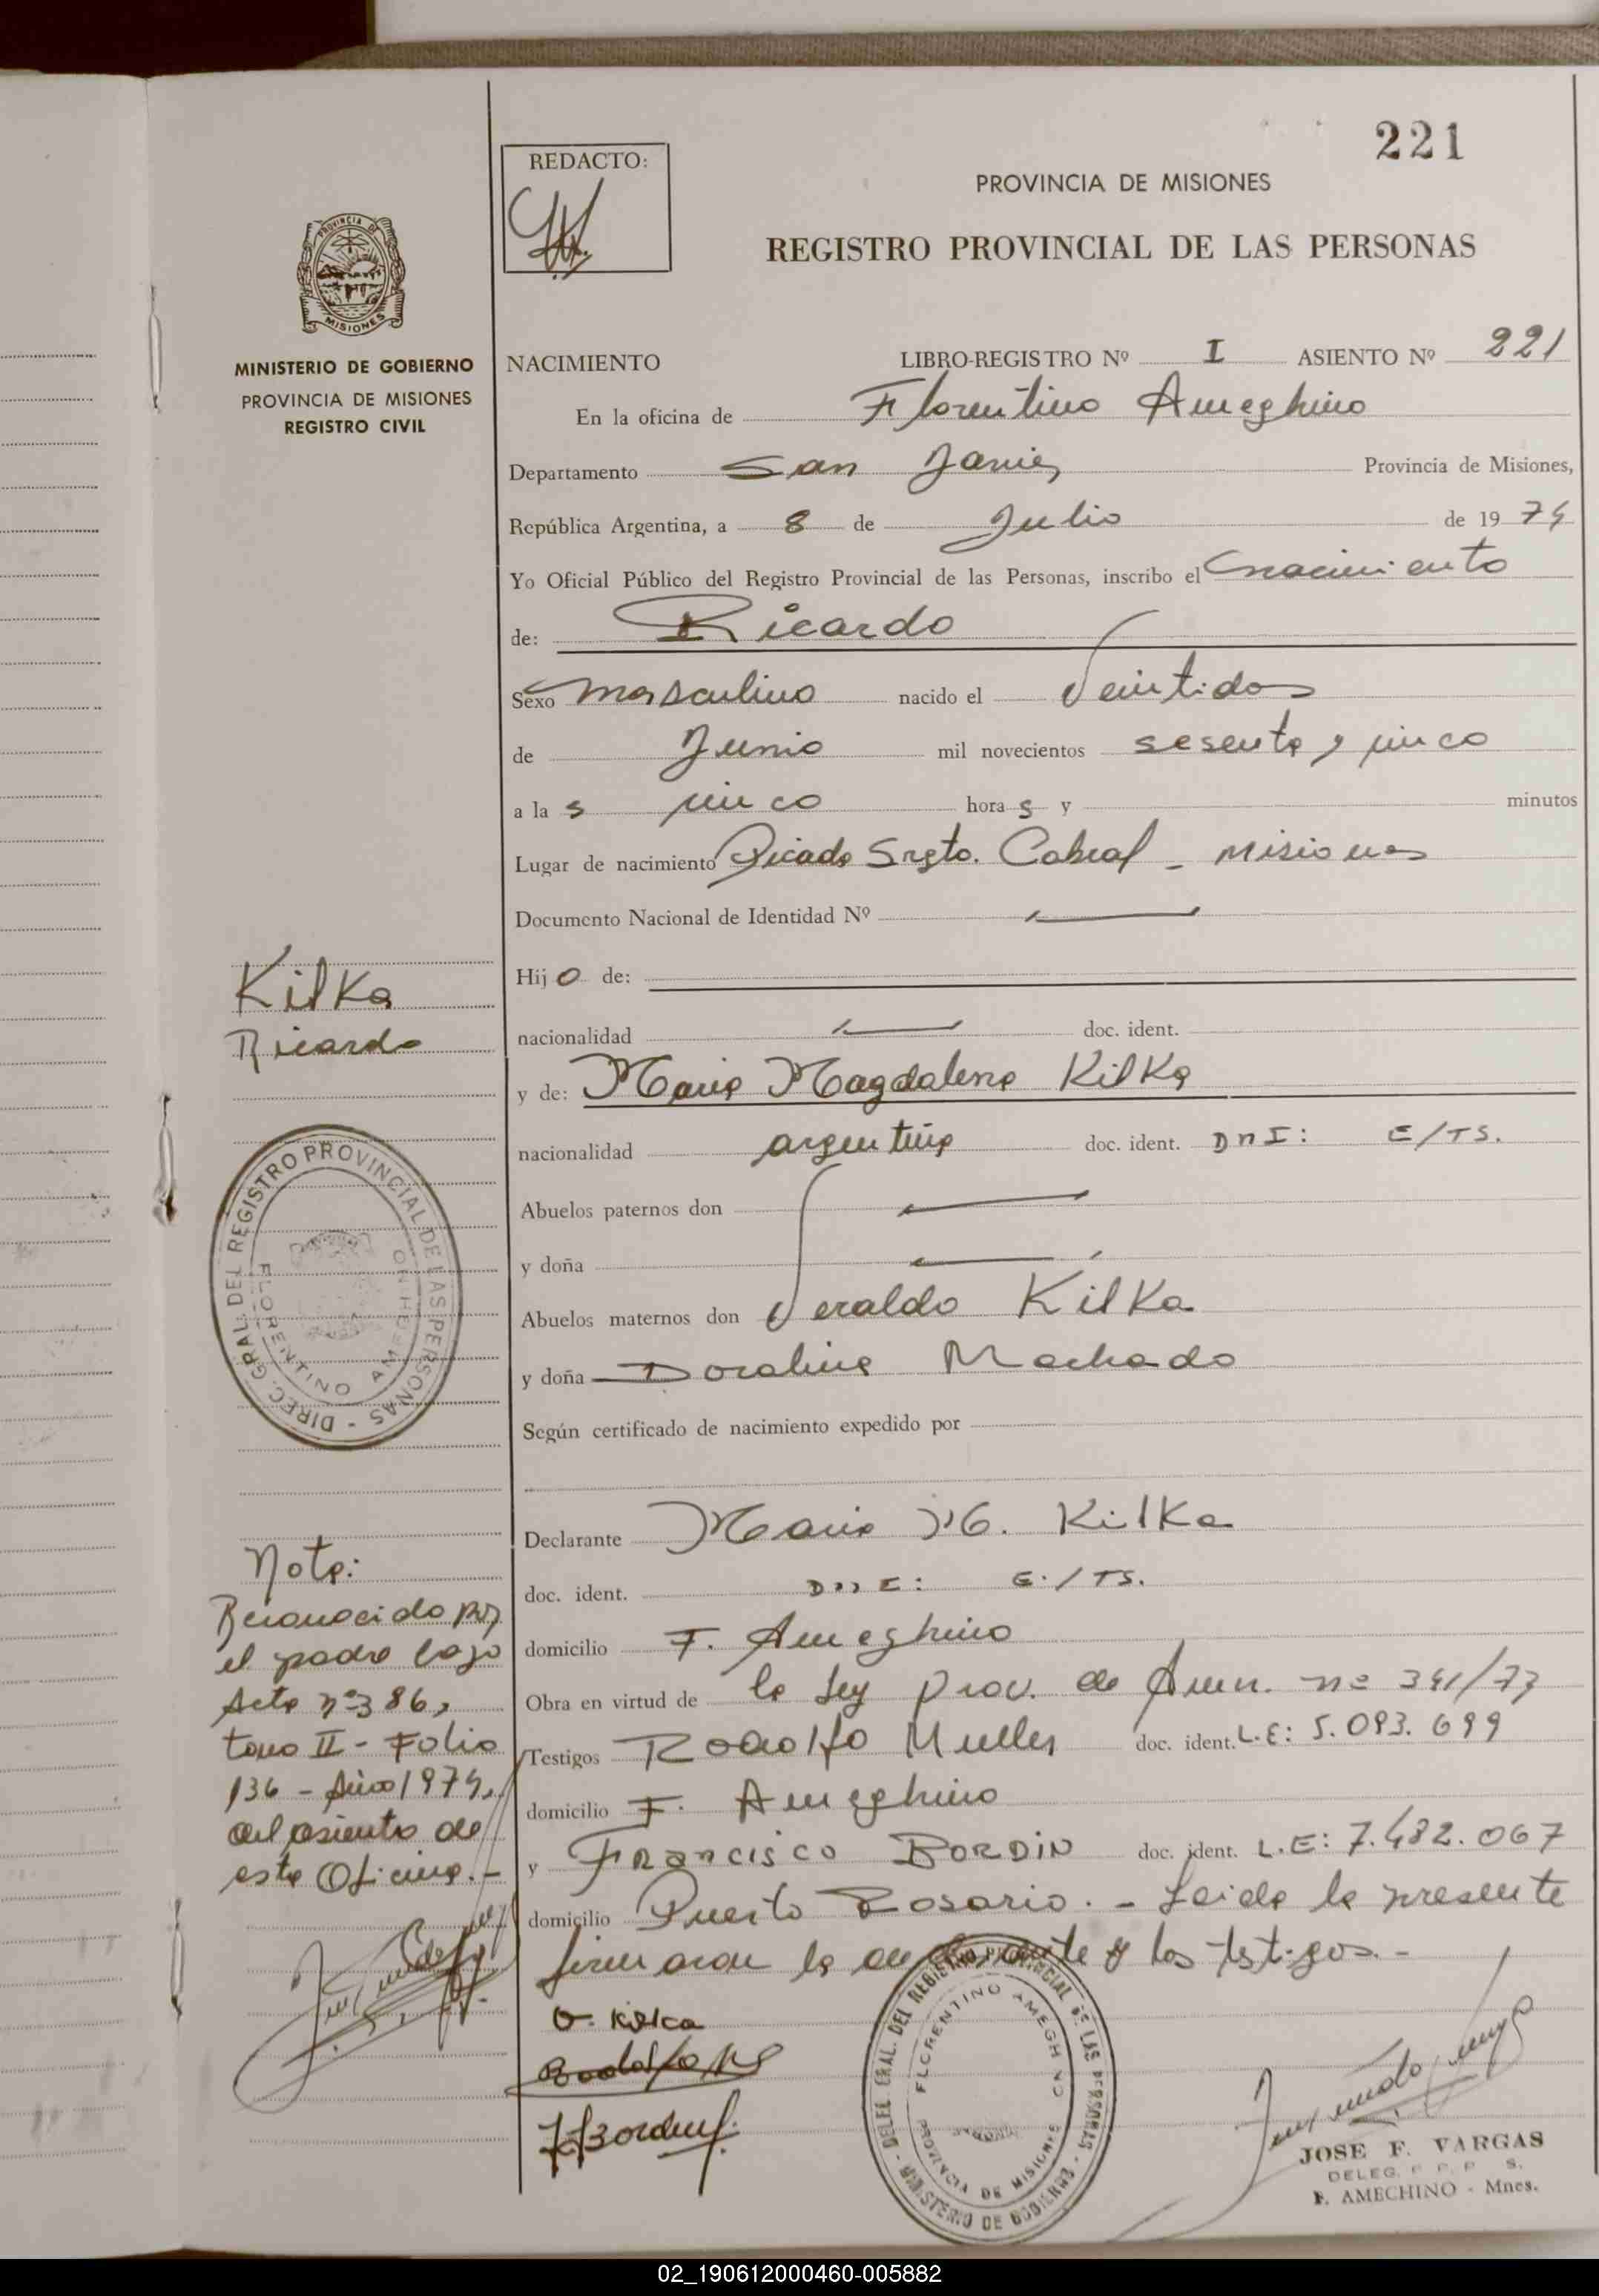 221
REDACTO:
PROVINCIA DE MISIONES
REGISTRO PROVINCIAL DE LAS PERSONAS
PROVINCIA DE
MISIONES
MINISTERIO DE GOBIERNO
PROVINCIA DE MISIONES
REGISTRO CIVIL
NACIMIENTO LIBRO-REGISTRO Nº I ASIENTO Nº 221
En la oficina de Florentino Ameghino
Departamento San Javier Provincia de Misiones,
República Argentina, a 8 de Julio de 1974
Yo Oficial Público del Registro Provincial de las Personas, inscribo el nacimiento
de: Ricardo
Sexo masculino nacido el Veintidos
de Junio mil novecientos sesenta y cinco
a la s cinco hora s y minutos
Lugar de nacimiento Picada Srgto. Cabral - Misiones
Documento Nacional de Identidad Nº
Hij o de:
nacionalidad doc. ident.
y de: Maria Magdalena Kilka
nacionalidad argentina doc. ident. DNI: E/TS.
Abuelos paternos don
y doña
Abuelos maternos don Veraldo Kilka
y doña Doralina Machado
Según certificado de nacimiento expedido por
Declarante Maria M. Kilka
doc. ident. DNI: E./TS.
domicilio F. Ameghino
Obra en virtud de la Ley Prov. de Amn. nº 341/73
Testigos Rodolfo Muller doc. ident. L.E: 5.093.699
domicilio F. Ameghino
y Francisco BORDIN doc. ident. L.E: 7.482.067
domicilio Puerto Rosario. - Leida la presente
firmaron la declarante y los testigos. -
Kilka
Ricardo
DIREC. GRAL. DEL REGISTRO PROVINCIAL DE LAS PERSONAS -
FLORENTINO AMEGHINO
Nota:
Reconocido por
el padre bajo
Acta nº 386,
tomo II - Folio
136 - Año 1974,
del asiento de
esta Oficina. -
DELEG. GRAL. DEL REGISTRO PROVINCIAL DE LAS PERSONAS -
MINISTERIO DE GOBIERNO
FLORENTINO AMEGHINO
PROVINCIA DE MISIONES
JOSE F. VARGAS
F. AMECHINO - Mnes.
02_190612000460-005882